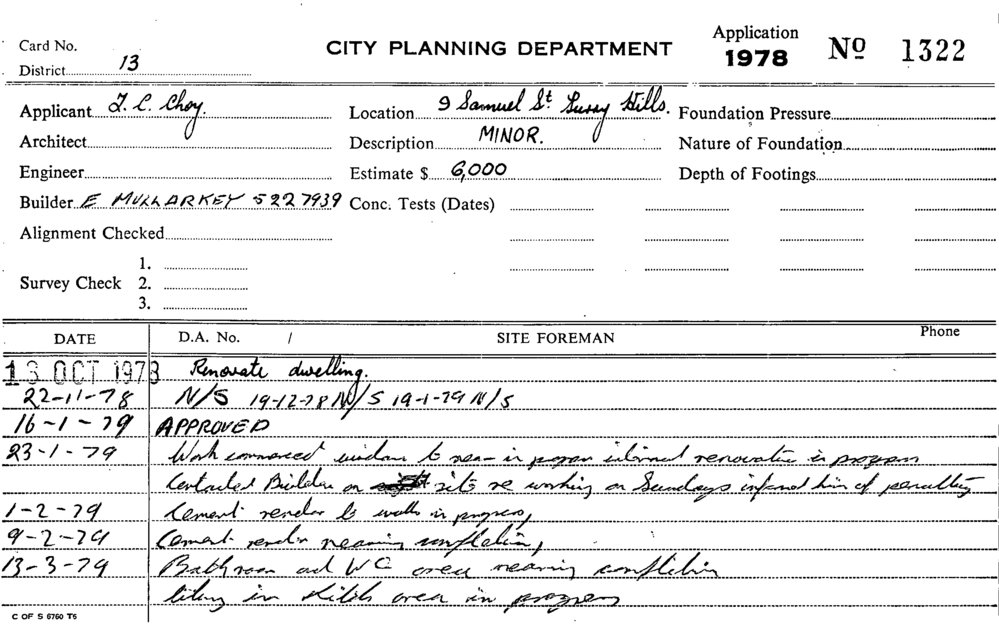 Card No.
District 13
CITY PLANNING DEPARTMENT
Application
1978
No 1322
Applicant T. C. Choy.
Location 9 Samuel St. Surry Hills.
Foundation Pressure
Architect
Description MINOR.
Nature of Foundation
Engineer
Estimate $ 6,000
Depth of Footings
Builder E MULLARKEY 5227939
Conc. Tests (Dates)
Alignment Checked
Survey Check
1.
2.
3.
DATE
D.A. No. /
SITE FOREMAN
Phone
13 OCT 1978 Renovate dwelling.
22-11-78 N/S 19-12-78 N/S 19-1-79 N/S
16-1-79 APPROVED
23-1-79 Work commenced to rear in internal renovation in progress
Contacted Builder on site re working on Sundays informed him of penalty
1-2-79 Cement render to walls in progress,
9-2-79 Cement render nearing completion,
13-3-79 Bathroom and WC area nearing completion
tiling in area in progress
C OF S 6760 T6